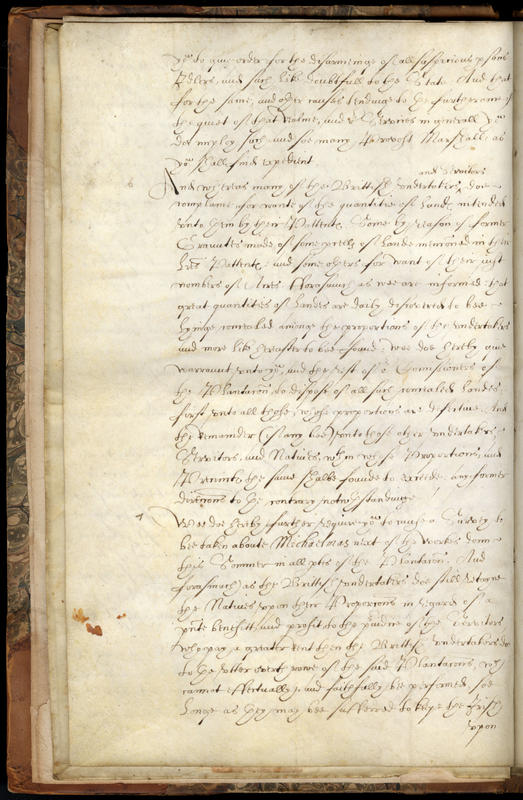 yow to give order for the disarminge of all suspicious psons
Idlers, and such like doubtfull to the State. And that
for the same, and other causes tendinge to the furtherance of
the quiet of that Realme, and or Services in generall yow
doe imploy such and soe many Provost Marshalls as
yow shall find expedient.
and Servitors
6 And whereas many of the Brittish undertakers, doe
complaine for wante of the quantitie of Land intended
unto them by their Pattents, Some by reason of former
Grauntes made of some psells of Lande mencioned in their
Lres Pattents: and some others for want of their just
nombers of Acres. Forasmuch as we are informed that
great quantities of Landes are daily discovered to bee
lyinge concealed amonge the proportions of the undertakers
and more like hereafter to bee found, wee doe hereby give
warraunt unto yow, and the rest of or Comissioners of
the Plantacon to dispose of all such concealed Landes
first unto all those, whose proportions are defective. And
the remainder (if any bee) unto those other undertakers,
Servitors, and Natives, whin whose Proportions, and
Precincts the same shalbe founde to exceede, any former
direcions to the contrary notwthstandinge
7 Wee doe hereby further require yow to cause a Survey to
bee taken aboute Michaelmas next of the workes donn
this Sommer in all ptes of the Plantacon. And
forasmuch as the Brittish undertakers doe still retayne
the Natives upon their Proporcons in regard of a
pnte benefitt, and profit to the piudice of the Servitors
who pay a greater rent then the Brittish undertakers do
to the utter overthrowe of the said Plantacons, wch
cannot effectually, and faithfully be performed soe
longe as they may bee suffered to kepe the Irish
upon